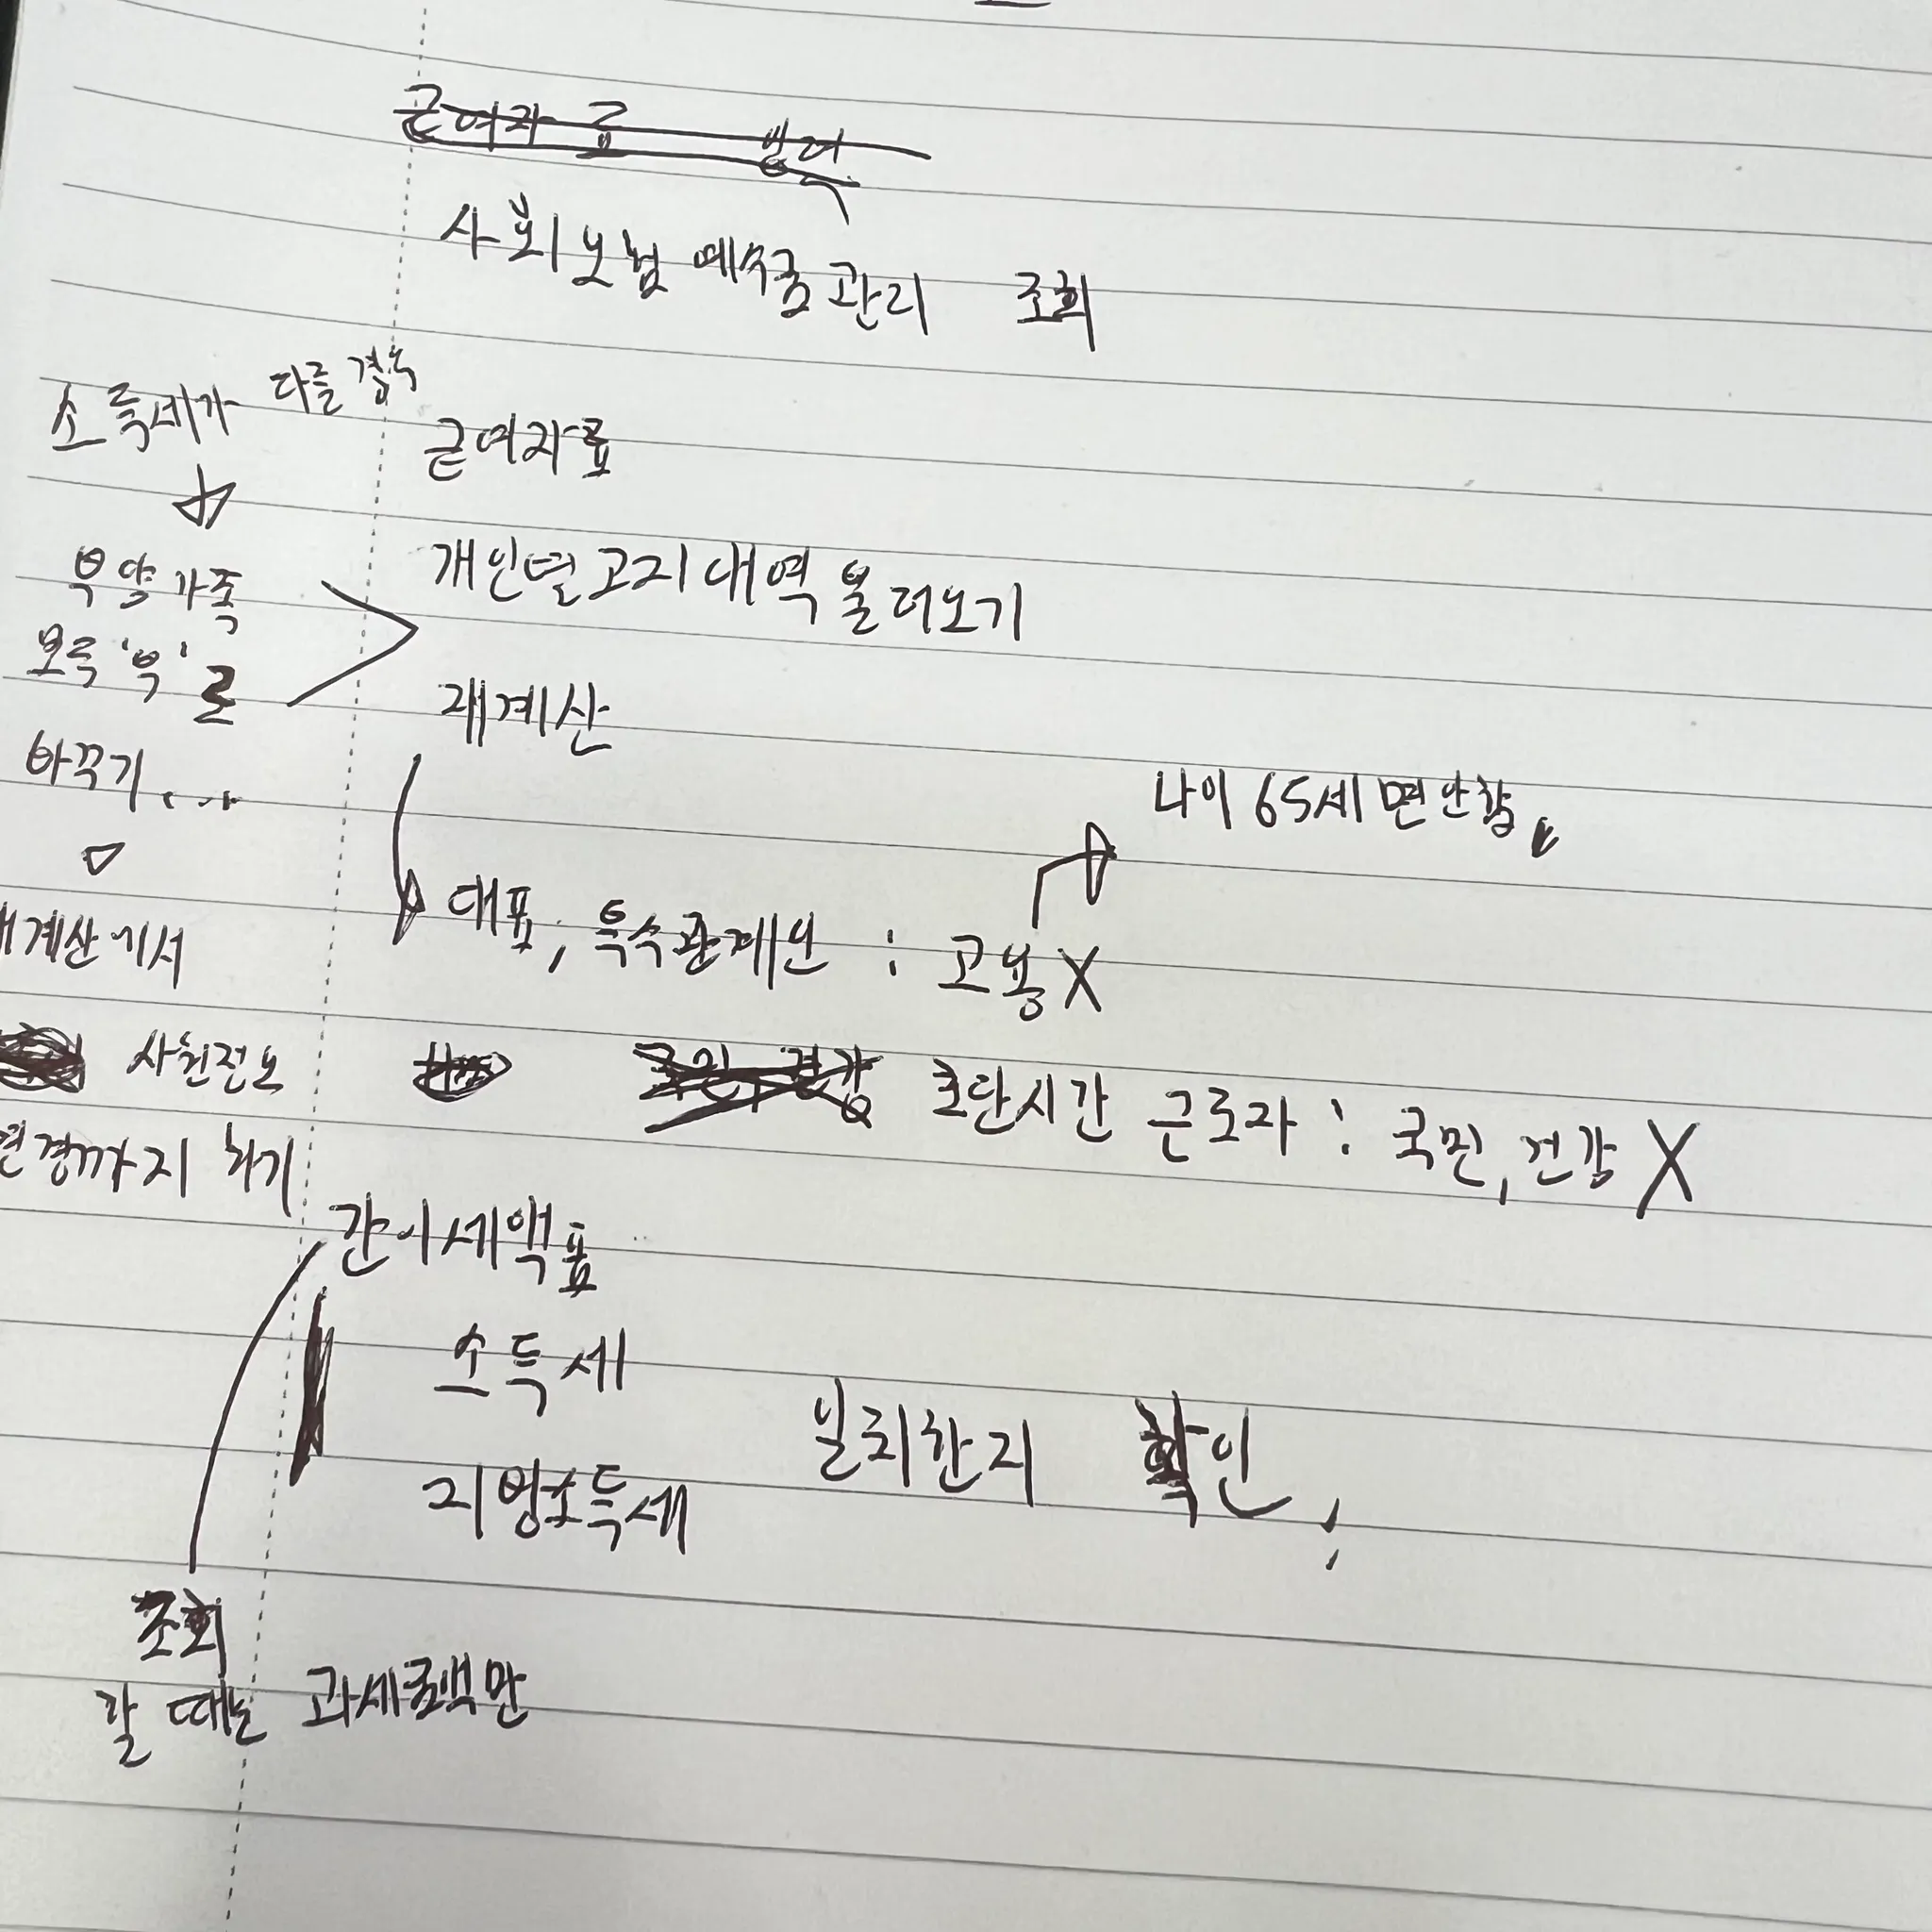 사회보험 예수금 관리 조회
소득세가 다를 경우
급여자료
부양가족
개인별고지내역 불러오기
모두 '부'로
재계산
바꾸기...
나이 65세면 안함.
대표, 특수관계인 : 고용X
재계산에서
사원정보
초단시간 근로자 : 국민, 건강 X
변경까지 하기
간이세액표
소득세
일치한지 확인,
지방소득세
조회
할 때는 과세금액만